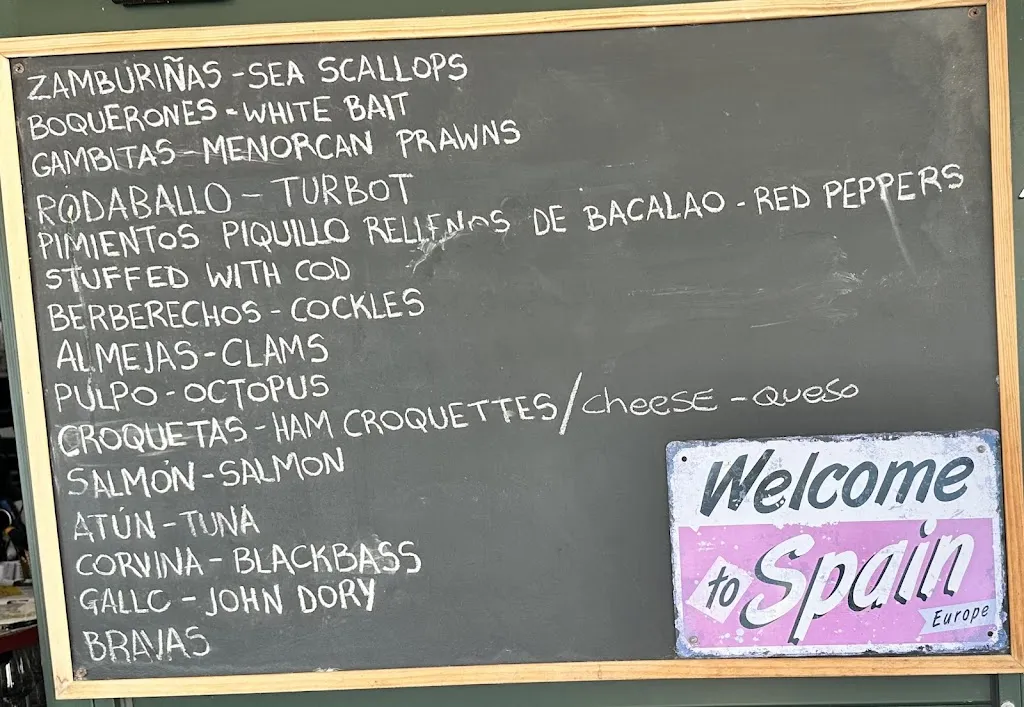 ZAMBURIÑAS - SEA SCALLOPS
BOQUERONES - WHITE BAIT
GAMBITAS - MENORCAN PRAWNS
RODABALLO - TURBOT
PIMIENTOS PIQUILLO RELLENOS DE BACALAO - RED PEPPERS
STUFFED WITH COD
BERBERECHOS - COCKLES
ALMEJAS - CLAMS
PULPO - OCTOPUS
CROQUETAS - HAM CROQUETTES / cheese - queso
SALMÓN - SALMON
ATÚN - TUNA
CORVINA - BLACKBASS
GALLO - JOHN DORY
BRAVAS
Welcome
to Spain
Europe